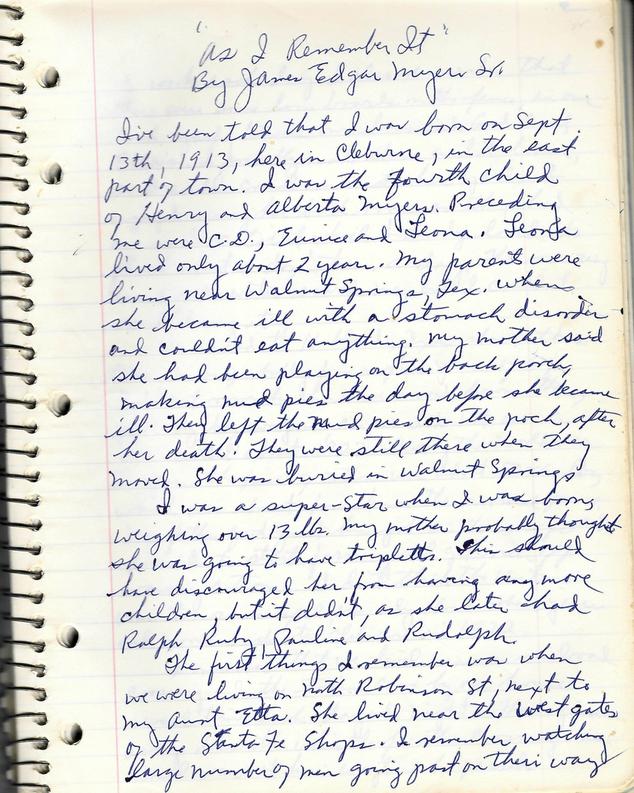 "As I Remember It"
By James Edgar Myers Sr.
I've been told that I was born on Sept.
13th, 1913, here in Cleburne, in the east
part of town. I was the fourth child
of Henry and Alberta Myers. Preceding
me were C.D., Eunice and Leona. Leona
lived only about 2 years. My parent were
living near Walnut Springs, Tex. when
she became ill with a stomach disorder
and couldn't eat anything. My mother said
she had been playing on the back porch,
making mud pies the day before she became
ill. They left the mud pies on the poch, after
her death. They were still there when they
moved. She was buried in Walnut Springs
I was a super-star when I was born,
weighing over 13 lbs. My mother probably thought
she was going to have tripletts. This should
have discouraged her from having any more
children, but it didn't, as she later had
Ralph, Ruby, Pauline and Rudolph.
The first things I remember was when
we were living on North Robinson St, next to
my Aunt Etta. She lived near the west gates
of the Santa Fe Shops. I remember watching
large number of men going past on their way